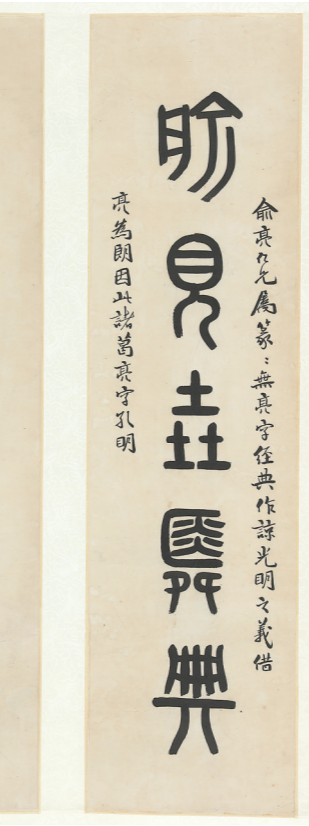 俞亮九兄屬篆〻無亮字經典作諒光明之義借
見垚典
亮為朗因此諸葛亮字孔明